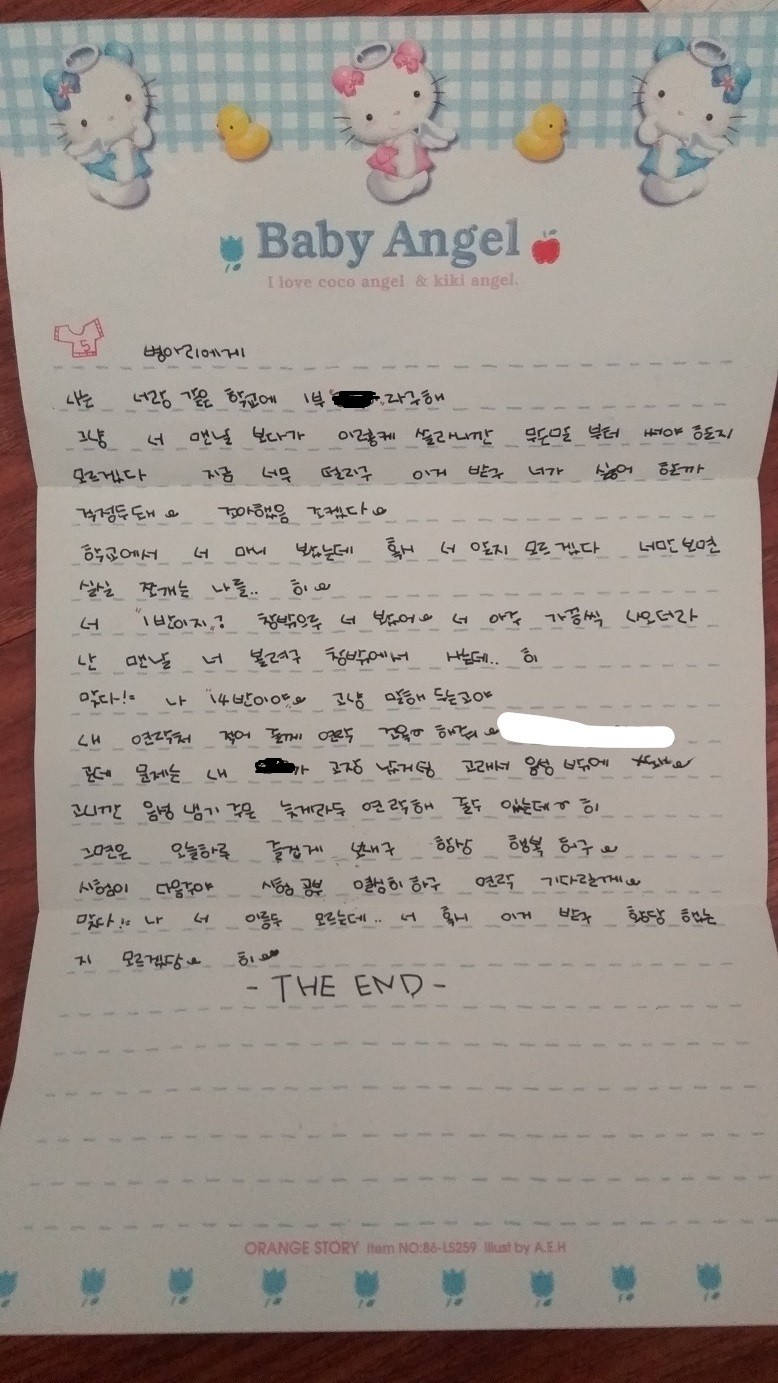 Baby Angel
I love coco angel & kiki angel.
5
병아리에게
나는 너랑 같은 학교에 1부 라구해
그냥 너 맨날 보다가 이렇케 쓸라니깐 무슨말 부터 써야 할지
모르겠다 지금 너무 떨리구 이게 받구 너가 싫어 할까
걱정두돼 조아했음 조켔다
학교에서 너 마니 봤는데 혹시 너 알지 모르겠다 너만보면
실실 쪼개는 나를.. 히
너 "1반이지? 창밖으루 너 봤어 너 아주 가끔씩 나오더라
난 맨날 너 볼려구 창밖에서 사는데.. 히
맞다! 나 "14반이야 고냥 말해 두는고야
내 연락처 적어 줄께 연락 꼬옥 해줘
곤데 문제는 내 가 고장 났거덩 고래서 음성 밖에
고니깐 음성 냄기 주믄 늦게라두 연락해 줄수 있는데 히
그면은 오늘하루 즐겁게 보내구 항상 행복 하구
시험이 다음주야 시험 공부 열심히 하구 연락 기다릴께
맞다! 나 너 이름두 모르는데.. 너 혹시 이거 받구 황당 했는
지 모르겠당 히
- THE END -
ORANGE STORY Item NO:86-LS259 Illust by A.E.H